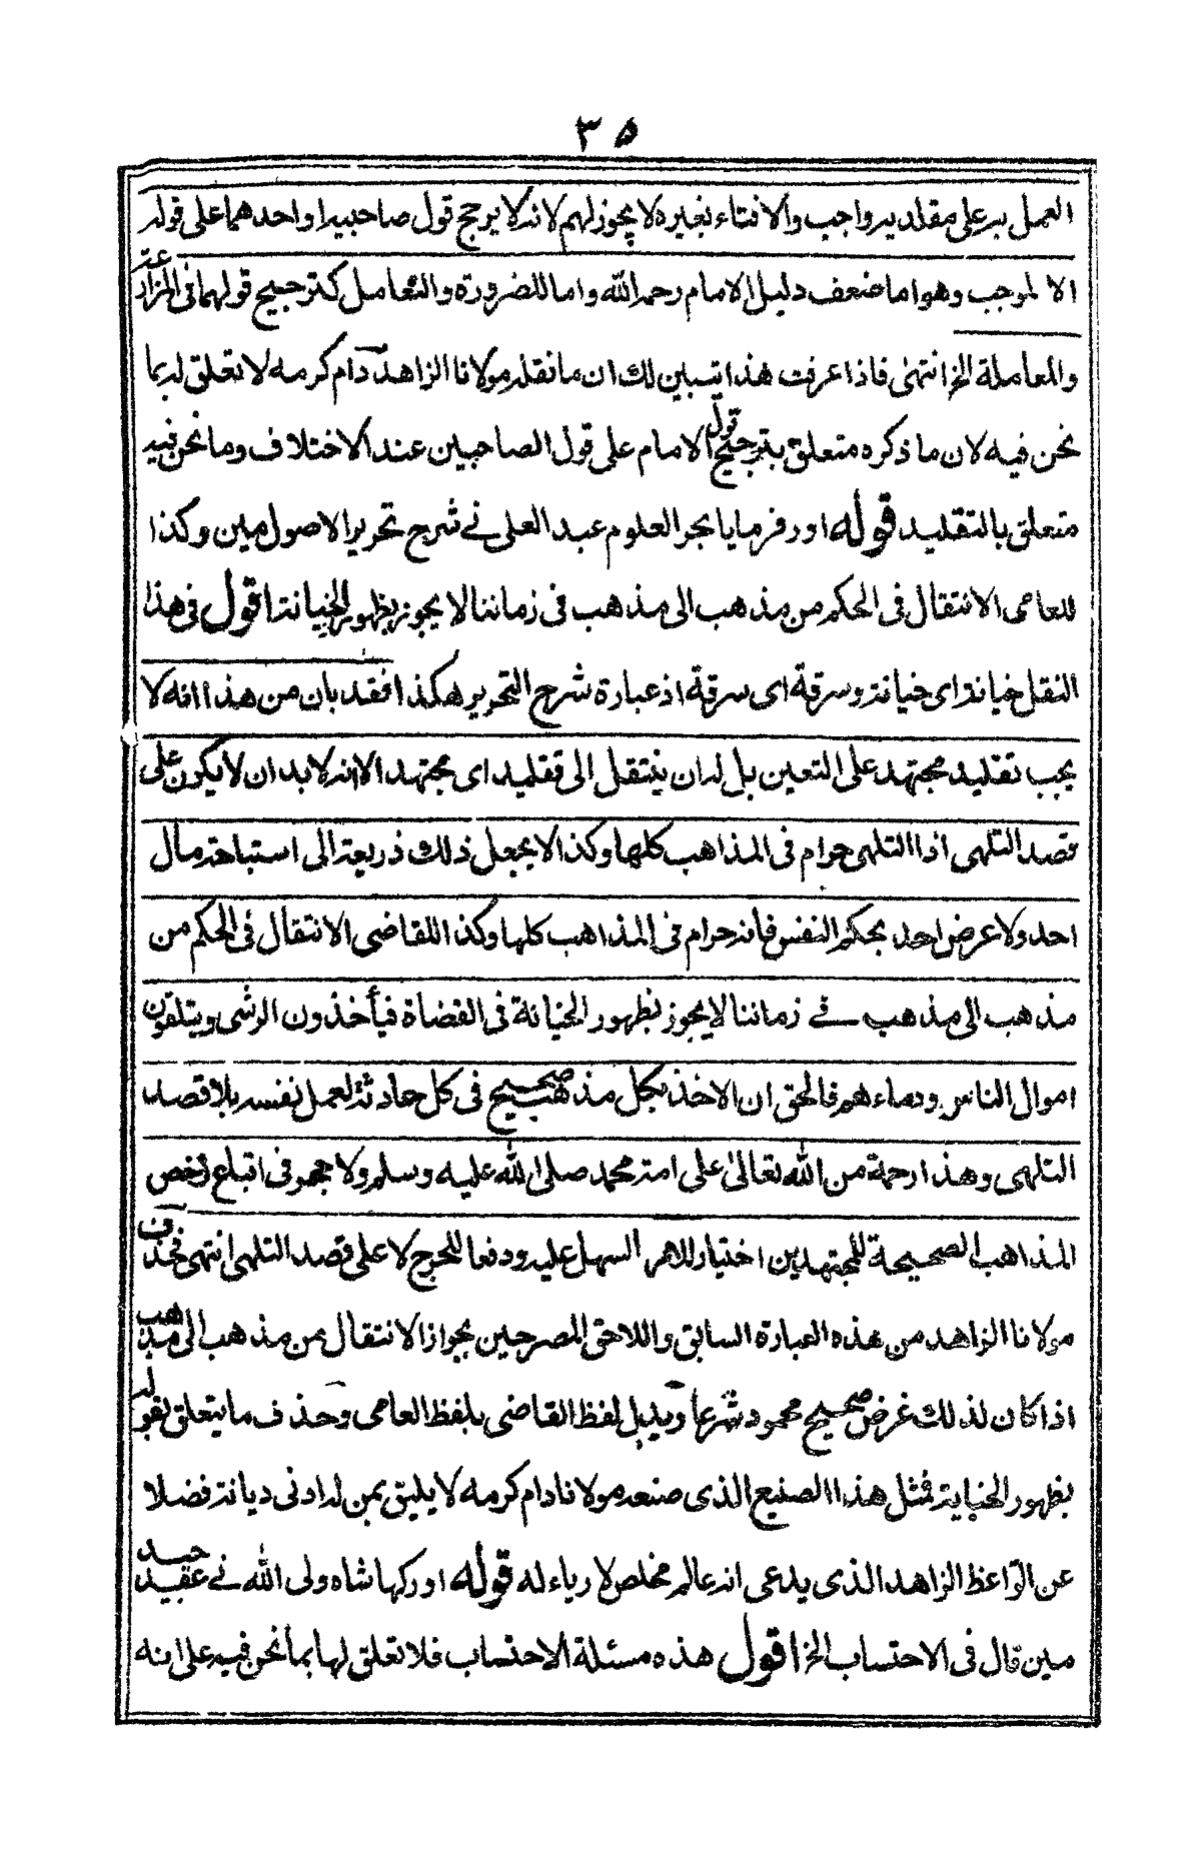 ٣٥
العمل به على مقلديه واجب والافتاء بغيره لا يجوز لهم لانه لا يرجح قول صاحبيه او احدهما على قوله
الا لموجب وهو اما ضعف دليل الامام رحمه الله واما للضرورة والتعامل كترجيح قولهما فى المزارعة
والمعاملة الخ انتهى فاذا عرفت هذا تبين لك ان ما نقله مولانا الزاهد دام كرمه لا تعلق له بما
نحن فيه لان ما ذكره متعلق بترجيح قول الامام على قول الصاحبين عند الاختلاف وما نحن فيه
متعلق بالتقليد قوله اور فرمايا بحر العلوم عبد العلى نے شرح تحرير الاصول مين وكذا
للعامى الانتقال فى الحكم من مذهب الى مذهب فى زماننا لا يجوز بظهور الخيانة اقول فى هذا
النقل خيانة اى خيانة وسرقة اى سرقة اذ عبارة شرح التحرير هكذا فقد بان من هذا انه لا
يجب تقليد مجتهد على التعين بل له ان ينتقل الى تقليد اى مجتهد الا انه لا بد ان لا يكون على
قصد التلهى اذ التلهى حرام فى المذاهب كلها وكذا لا يجعل ذلك ذريعة الى استباحة مال
احد ولا عرض احد بحكم النفس فانه حرام فى المذاهب كلها وكذا للقاضى الانتقال فى الحكم من
مذهب الى مذهب فے زماننا لا يجوز لظهور الخيانة فى القضاة فيأخذون الرشى ويتلقون
اموال الناس ودماءهم فالحق ان الاخذ بكل مذهب صحيح فى كل حادثة لعمل نفسه بلا قصد
التلهى وهذا رحمة من الله تعالى على امة محمد صلى الله عليه وسلم ولا حجر فى اتباع رخص
المذاهب الصحيحة للمجتهدين اختيار للامر السهل عليه ودفعا للحرج لا على قصد التلهى انتهى فحذف
مولانا الزاهد من هذه العبارة السابق واللاحق المصرحين بجواز الانتقال من مذهب الى مذهب
اذا كان لذلك غرض صحيح محمود شرعا وبدل لفظ القاضى بلفظ العامى وحذف ما يتعلق بقوله
بظهور الخيانة فمثل هذا الصنيع الذى صنعه مولانا دام كرمه لا يليق بمن له ادنى ديانة فضلا
عن الواعظ الزاهد الذى يدعى انه عالم مخلص لا رياء له قوله اور كها شاه ولى الله نے عقد الجيد
مين قال فى الاحتساب الخ اقول هذه مسئلة الاحتساب فلا تعلق لها بما نحن فيه على انه